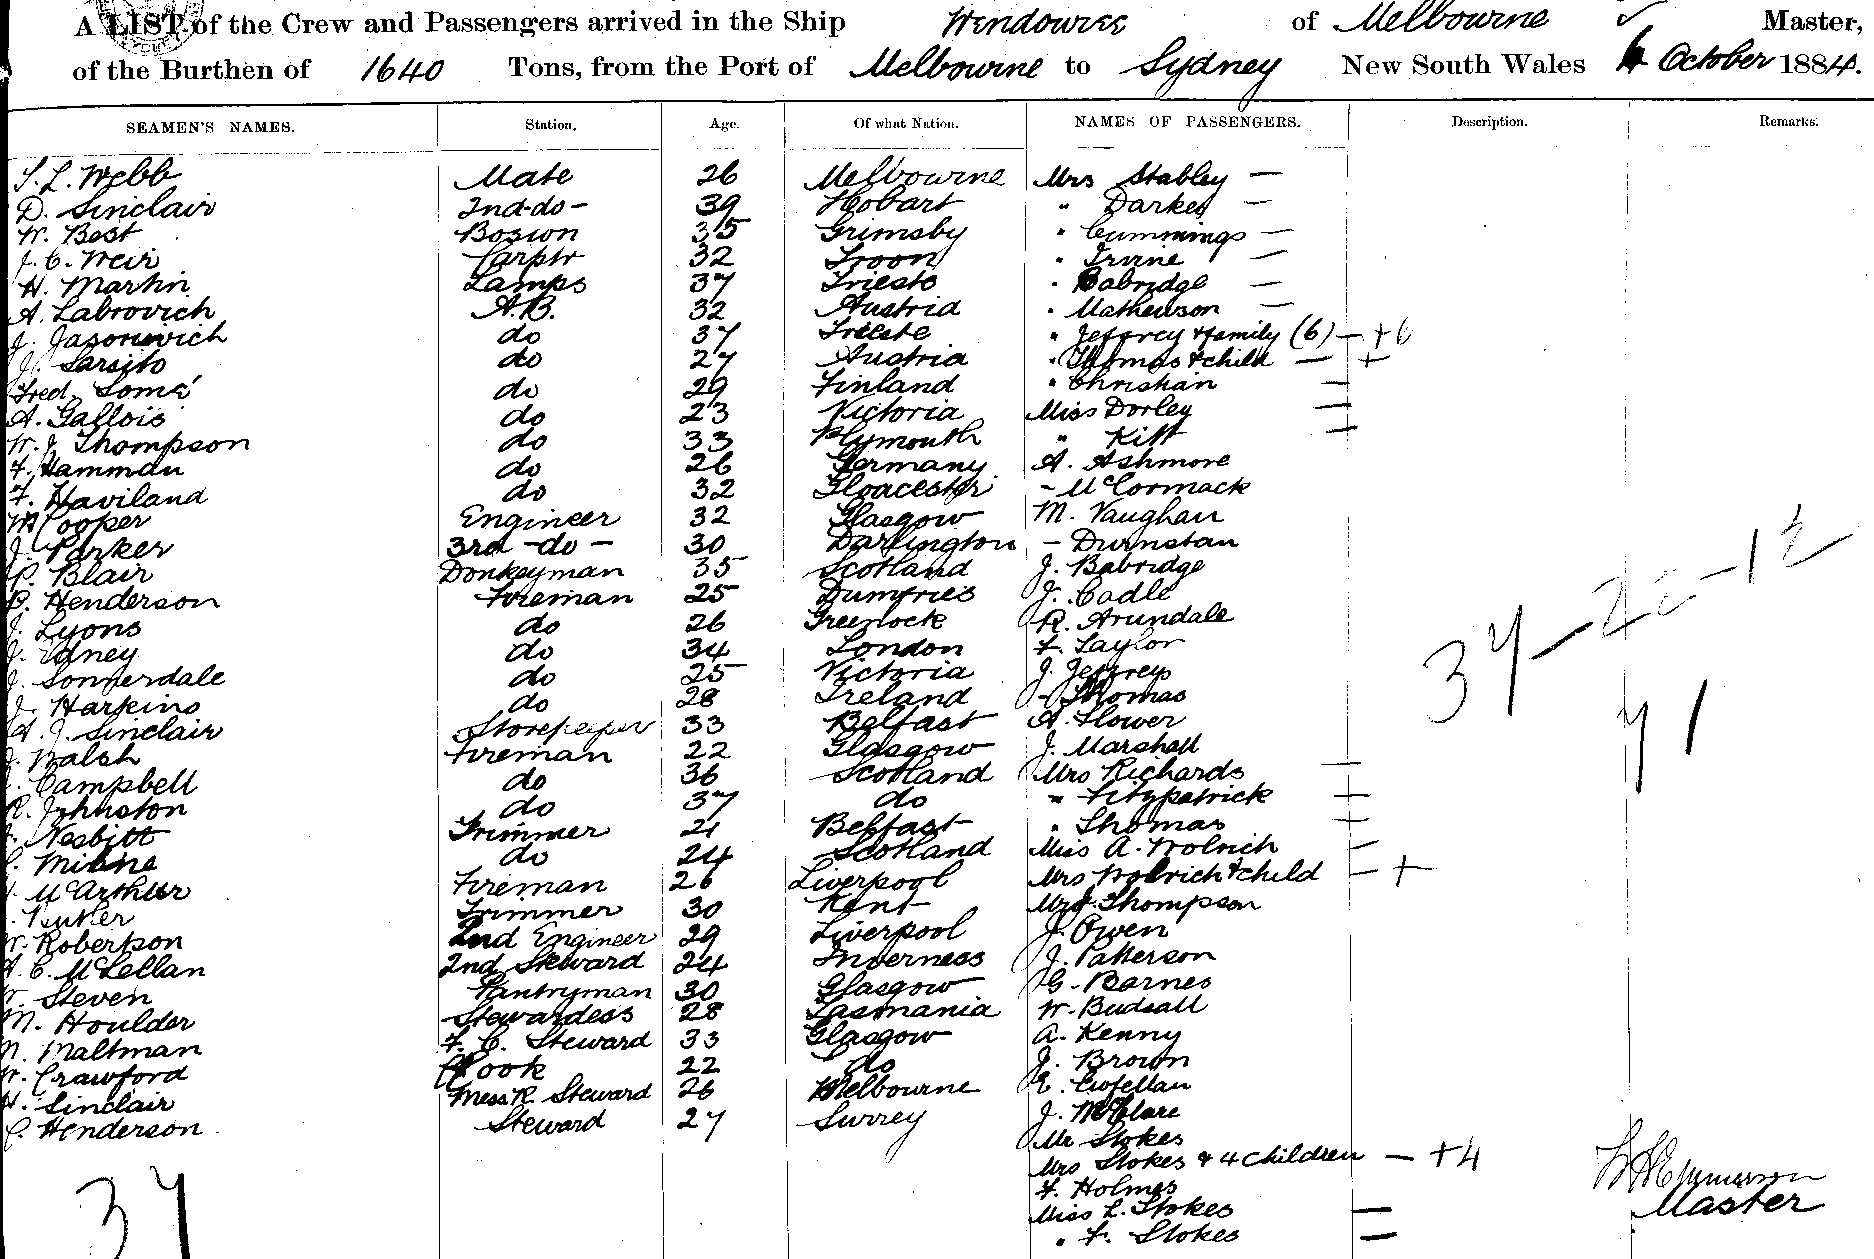 A LIST of the Crew and Passengers arrived in the Ship Wendouree of Melbourne Master,
of the Burthen of 1640 Tons, from the Port of Melbourne to Sydney New South Wales 6 October 1884.
SEAMEN'S NAMES. Station. Age. Of what Nation. NAMES OF PASSENGERS. Description. Remarks.
S. L. Webb Mate 26 Melbourne Mrs Stabley —
D. Sinclair 2nd-do- 39 Hobart " Darkes —
W. Best Bosun 35 Grimsby " Cummings —
J. C. Weir Carptr 32 Troon " Irvine —
H. Martin Lamps 37 Trieste " Babridge —
A. Labrovich A.B. 32 Austria " Mathewson —
J. do 37 Trieste " Jeffrey & family (6) — +6
J. Sarsito do 27 Austria " Thomas & child — +
Fred. Somé do 29 Finland " Christian —
A. Gallois do 23 Victoria Miss Dorley —
W. J. Thompson do 33 Plymouth " Kitt —
F. Hamman do 26 Germany A. Ashmore
F. Haviland do 32 Gloacester - McCormack
W Cooper Engineer 32 Glasgow M. Vaughan
J. Parker 3rd -do- 30 Darlington - Durnstan
P. Blair Donkeyman 35 Scotland J. Babridge
B. Henderson Fireman 25 Dumfries J. Cadle
J. Lyons do 26 Greenock R. Arundale
J. Edney do 34 London F. Taylor
J. Sonnerdale do 25 Victoria J. Jeffreys
J. Harkins do 28 Ireland - Thomas
A. J. Sinclair Storekeeper 33 Belfast A. Flower
J. Walsh Fireman 22 Glasgow J. Marshall
Campbell do 36 Scotland Mrs Richards —
R. Johnston do 37 do " Fitzpatrick +
Nesbitt Trimmer 21 Belfast " Thomas +
Milne do 24 Scotland Miss A. Wolrich —
McArthur Fireman 26 Liverpool Mrs Wolrich & child — +
Butler Trimmer 30 Kent Mrs Thompson
W. Robertson 2nd Engineer 29 Liverpool J. Owen
A. C. McLellan 2nd Steward 24 Inverness J. Patterson
W. Steven Pantryman 30 Glasgow G. Barnes
M. Houlder Stewardess 28 Tasmania W. Budsall
N. Maltman F. C. Steward 33 Glasgow A. Kenny
W. Crawford Cook 22 do J. Brown
H. Sinclair Mess R. Steward 26 Melbourne E.
C. Henderson Steward 27 Surrey J. McClare
Mr Stokes
Mrs Stokes & 4 Children — +4
F. Holmes
Miss L. Stokes —
" F. Stokes —
37
37 — 22 — 12
71
Master